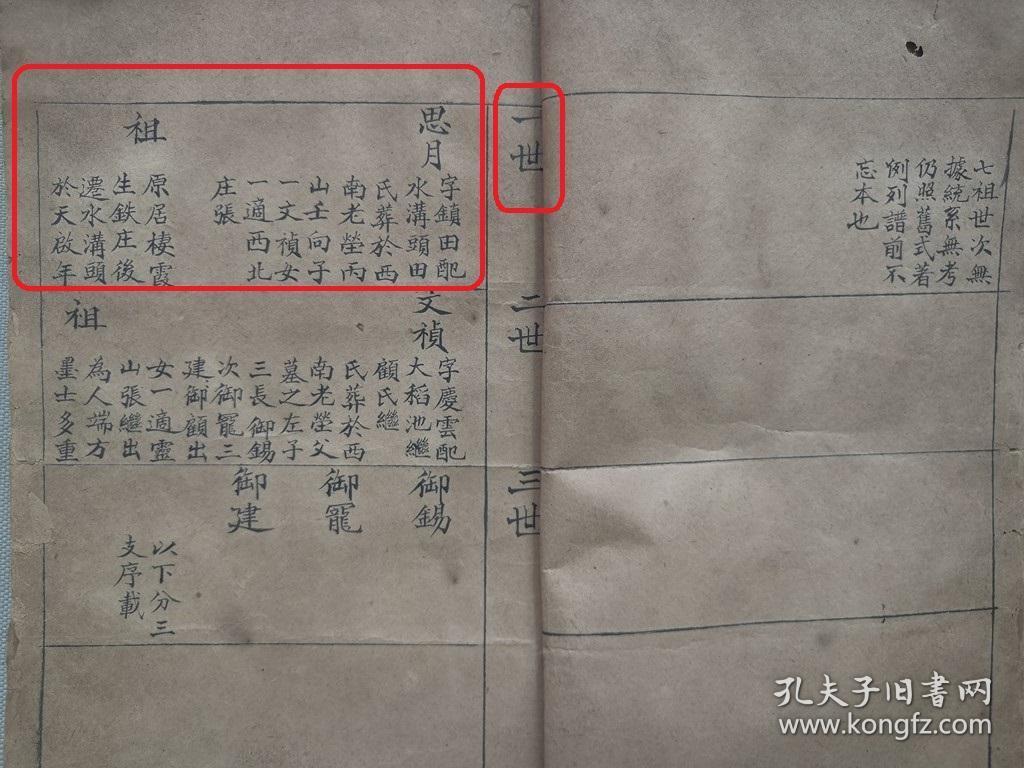 七祖世次無
據統系無考
仍照舊式著
例列譜前不
忘本也
一世
思月
字鎮田配
水溝頭田
氏葬於西
南老塋丙
山壬向子
一文禎女
一適西北
庄張
祖
原居棲霞
生鉄庄後
遷水溝頭
於天啟年
二世
文禎
字慶雲配
大稻池繼
顧氏繼
氏葬於西
南老塋父
墓之左子
三長御錫
次御寵三
建御顧出
女一適靈
山張繼出
為人端方
墨士多重
祖
三世
御錫
御寵
御建
以下分三
支序載
孔夫子旧书网
www.kongfz.com